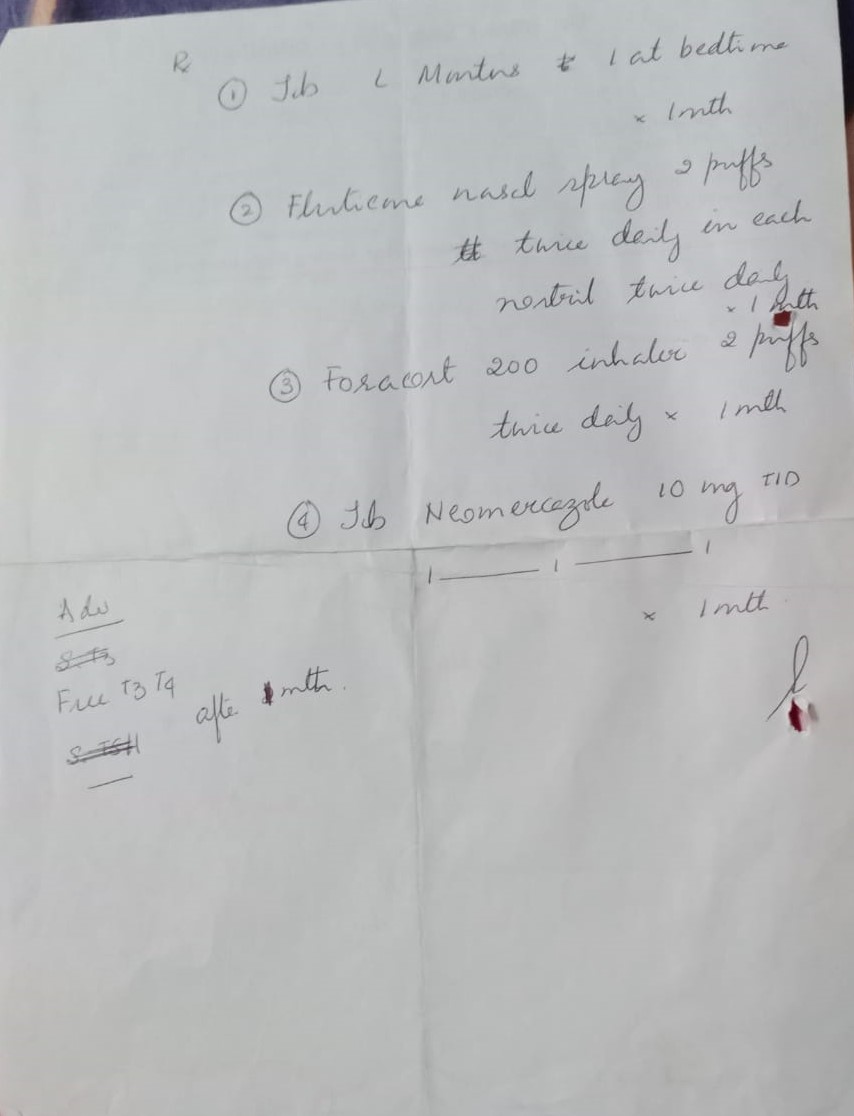 Rx
① Tab L Montus 1 at bedtime
x 1 mth
② Fluticone nasal spray 2 puffs
twice daily in each
nostril twice daily
x 1 mth
③ Foracort 200 inhaler 2 puffs
twice daily x 1 mth
④ Tab Neomercazole 10 mg TID
1 — 1 — 1
x 1 mth
Adv
S. T3
Free T3 T4
after 1 mth.
S. TSH